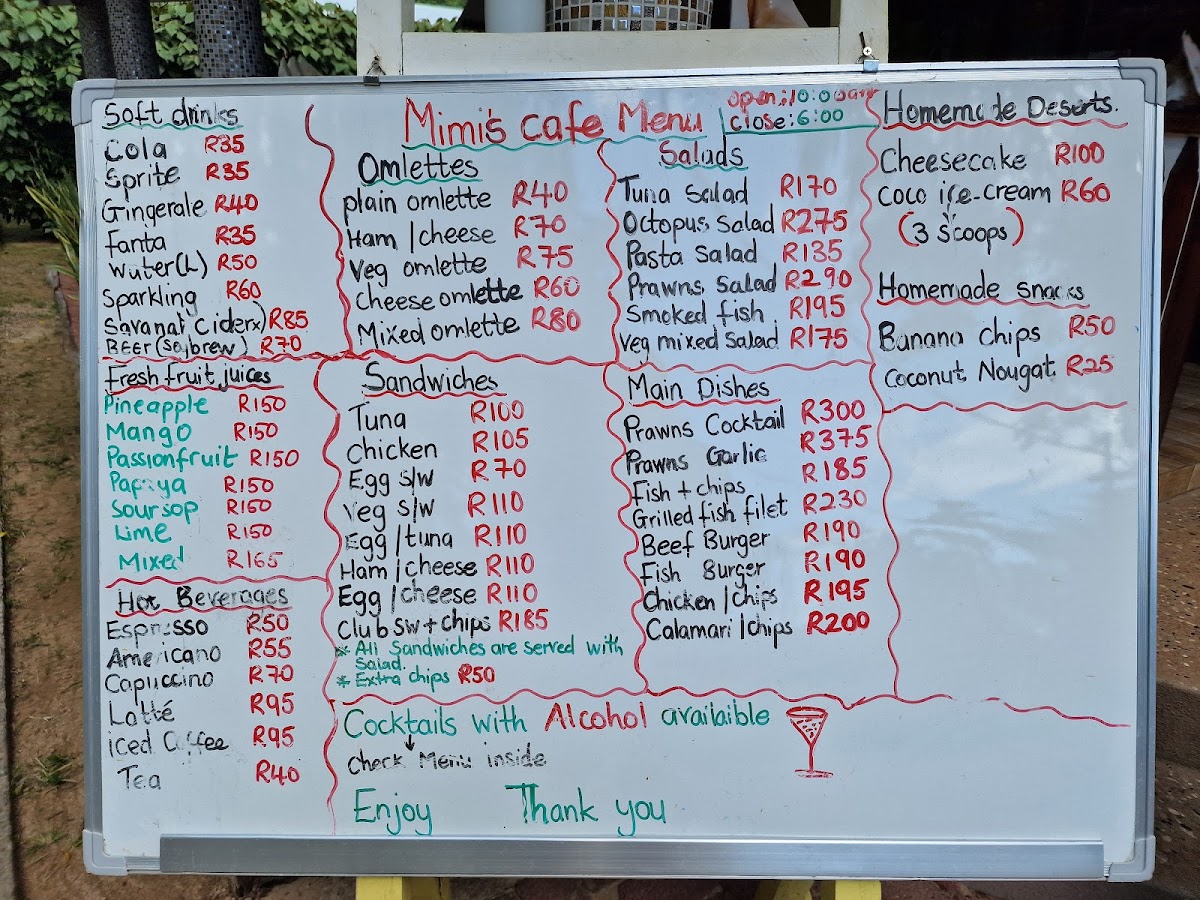 Mimi's cafe Menu
open:10:00am
close:6:00
Soft drinks
Cola R35
Sprite R35
Gingerale R40
Fanta R35
Water(L) R50
Sparkling R60
Savana( Cider) R85
BEER (Seybrew) R70
Fresh fruit juices
Pineapple R150
Mango R150
Passionfruit R150
Papaya R150
Soursop R150
Lime R150
Mixed R165
Hot Beverages
Espresso R50
Americano R55
Capuccino R70
Latté R95
iced Coffee R95
Tea R40
Omlettes
plain omlette R40
Ham/cheese R70
Veg omlette R75
Cheese omlette R60
Mixed omlette R80
Sandwiches
Tuna R100
Chicken R105
Egg s/w R70
Veg s/w R110
Egg/tuna R110
Ham/cheese R110
Egg/cheese R110
Club sw+chips R185
* All Sandwiches are served with
Salad.
* Extra chips R50
Salads
Tuna Salad R170
Octopus Salad R275
Pasta Salad R135
Prawns Salad R290
Smoked fish R195
Veg mixed Salad R175
Main Dishes
Prawns Cocktail R300
Prawns Garlic R375
Fish + chips R185
Grilled fish filet R230
Beef Burger R190
Fish Burger R190
Chicken/chips R195
Calamari/chips R200
Homemade Deserts.
Cheesecake R100
Coco ice-cream R60
(3 scoops)
Homemade snacks
Banana chips R50
Coconut Nougat R25
Cocktails with Alcohol availaible
check Menu inside
Enjoy Thank you